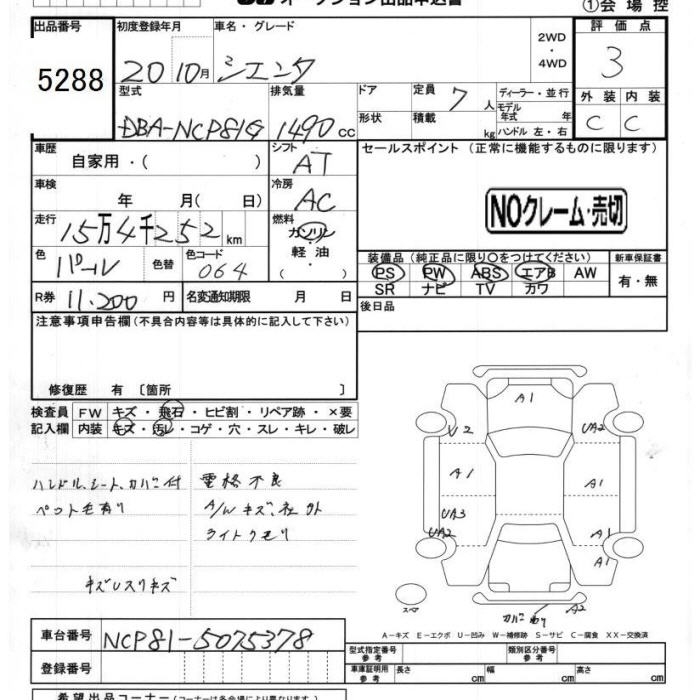 オークション出品申込書 ①会場控
出品番号 初度登録年月 車名・グレード 2WD・4WD 評価点
5288 20 10月 シエンタ 3
型式 排気量 ドア 定員 7人 ディーラー・並行 外装 内装
DBA-NCP81G 1490cc 形状 積載 kg モデル年式 年 ハンドル 左・右 C C
車歴 自家用・( ) シフト AT セールスポイント (正常に機能するものに限ります)
車検 年 月( 日) 冷房 AC NOクレーム・売切
走行 15万4千252km 燃料 ガソリン・軽油・( )
色 パール 色替 色カラーコード 064 装備品 (純正品に限り〇をつけてください) 新車保証書
PS PW ABS エアB AW 有・無
SR ナビ TV カワ
R券 11.200円 名変通知期限 月 日 後日品
注意事項申告欄 (不具合内容等は具体的に記入して下さい)
修復歴 有〔箇所 〕
検査員 FW キズ・飛石・ヒビ割・リペア跡・×要
記入欄 内装 キズ・汚レ・コゲ・穴・スレ・キレ・破レ
ハンドル、シート、カバー付
ペット毛有り
キズUスリキズ
電格不良
A/Wキズ、社外
ライトクモリ
A1
U2 UA2
A1 A1
UA3
UA2 A1
A1
スペア カバー有り A2
A-キズ E-エクボ U-凹み W-補修跡 S-サビ C-腐食 XX-交換済
車台番号 NCP81-5075378
型式指定番号 参考 類別区分番号 参考
登録番号 車庫証明用 参考 長さ cm 幅 cm 高さ cm
希望出品コーナー (コーナーは各会場により異なります)